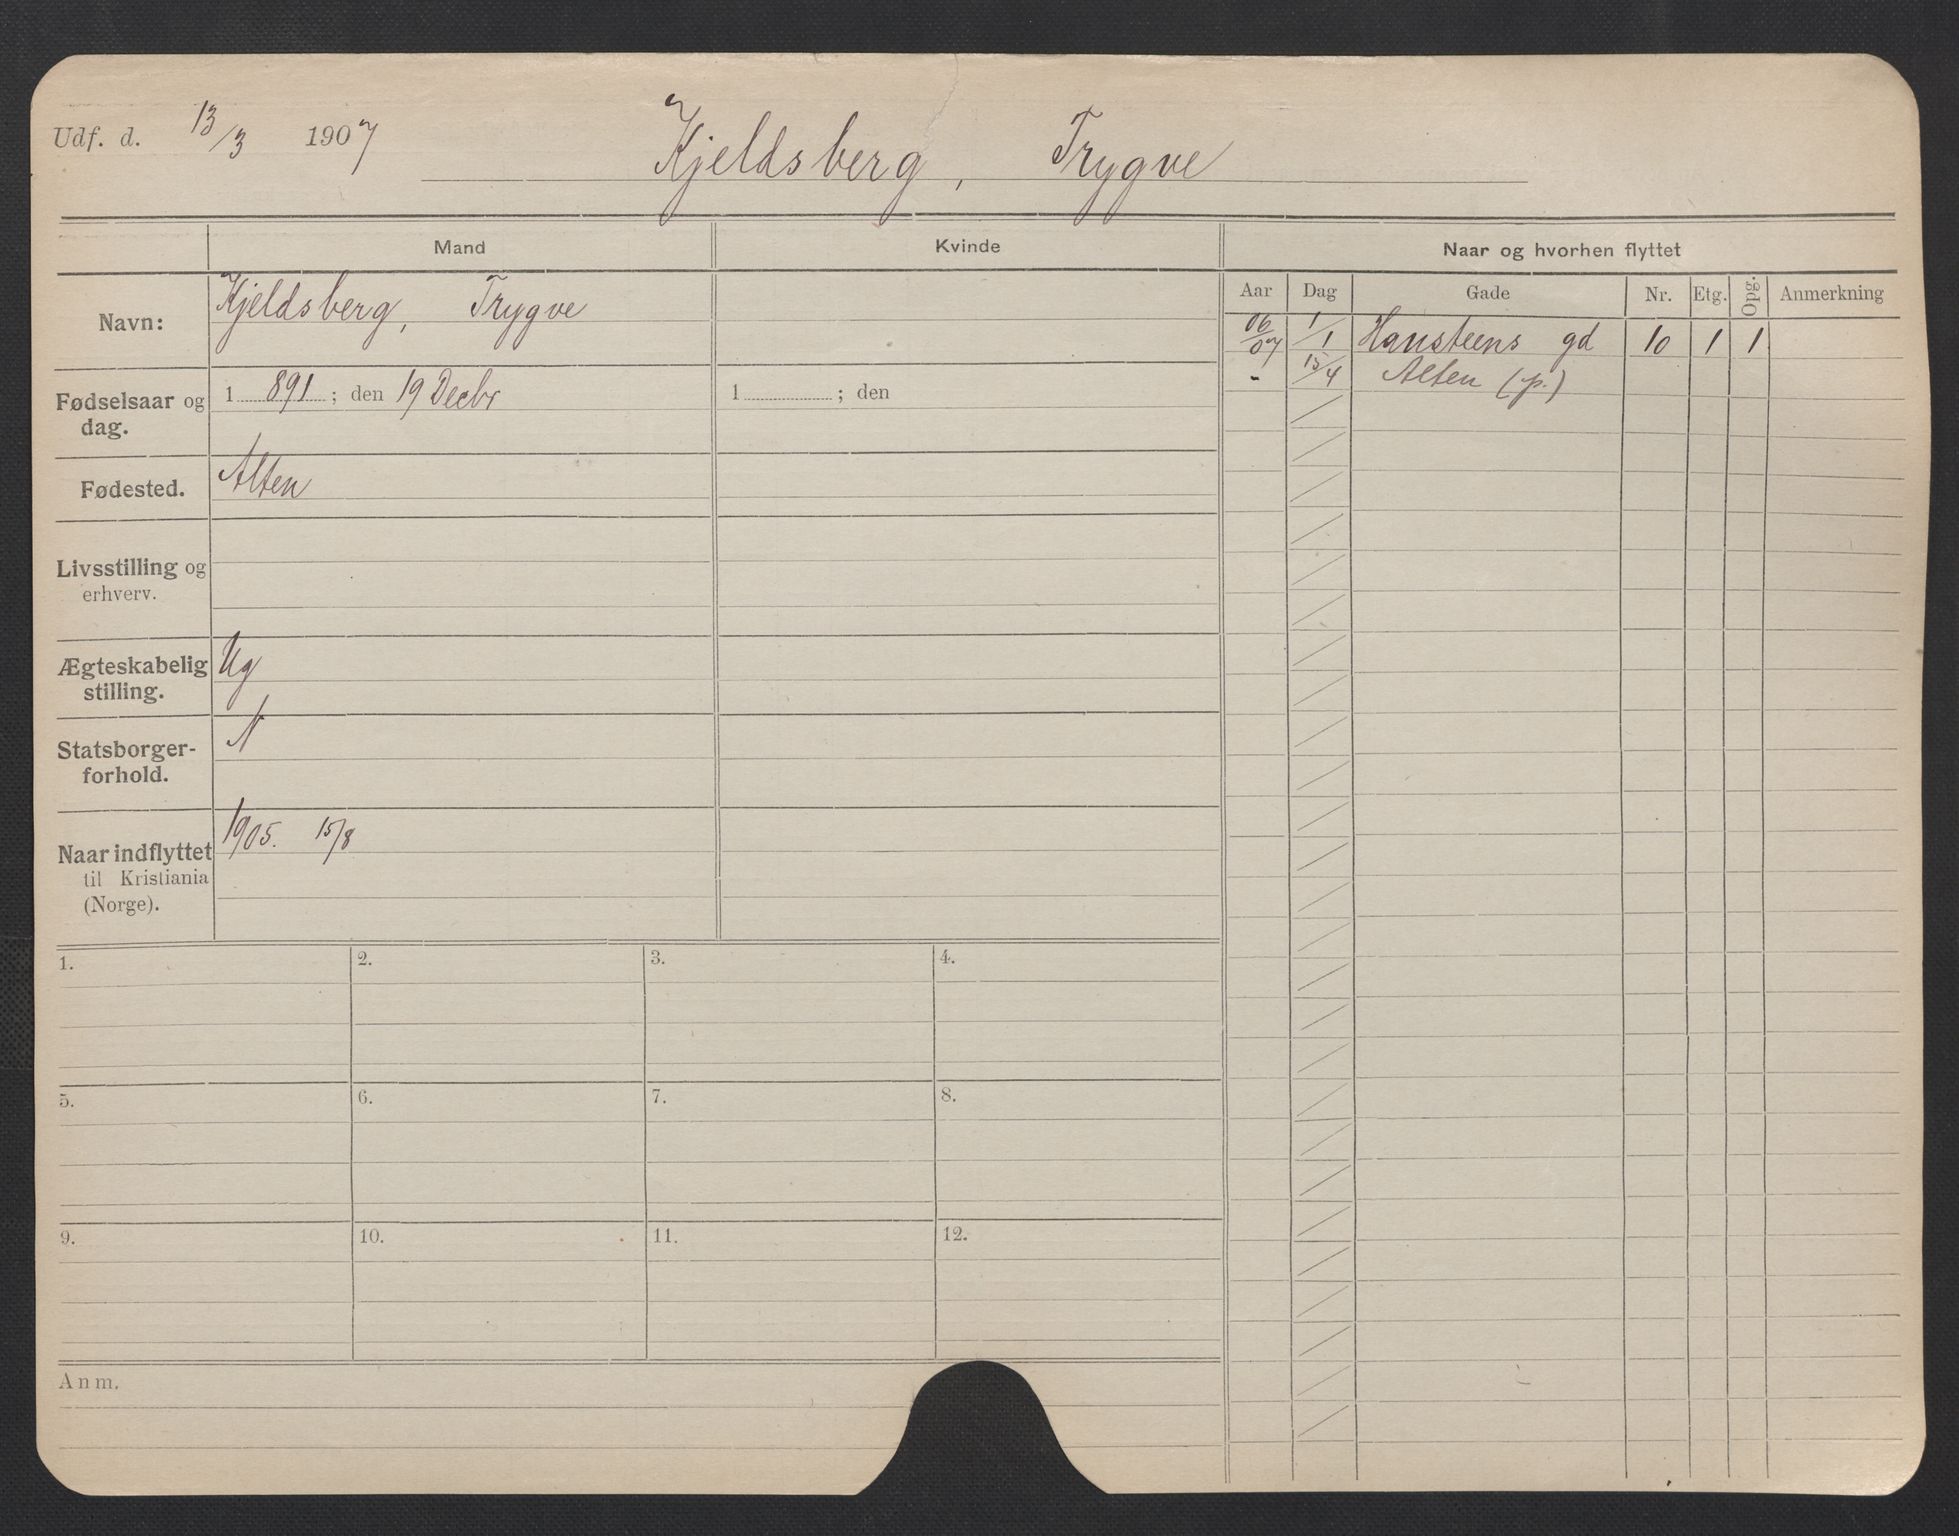 Udf. d. 13/3 1907 Kjeldsberg, Trygve
Mand Kvinde Naar og hvorhen flyttet
Aar Dag Gade Nr. Etg. Opg. Anmerkning
Navn: Kjeldsberg, Trygve
06/07 1/1 Hansteens gd 10 1 1
- 15/4 Alten (p.)
Fødselsaar og dag. 1891; den 19 Decbr 1 ; den
Fødested. Alten
Livsstilling og
erhverv.
Ægteskabelig
stilling. Ug
Statsborger-
forhold. N
Naar indflyttet 1905. 15/8
til Kristiania
(Norge).
1. 2. 3. 4.
5. 6. 7. 8.
9. 10. 11. 12.
Anm.